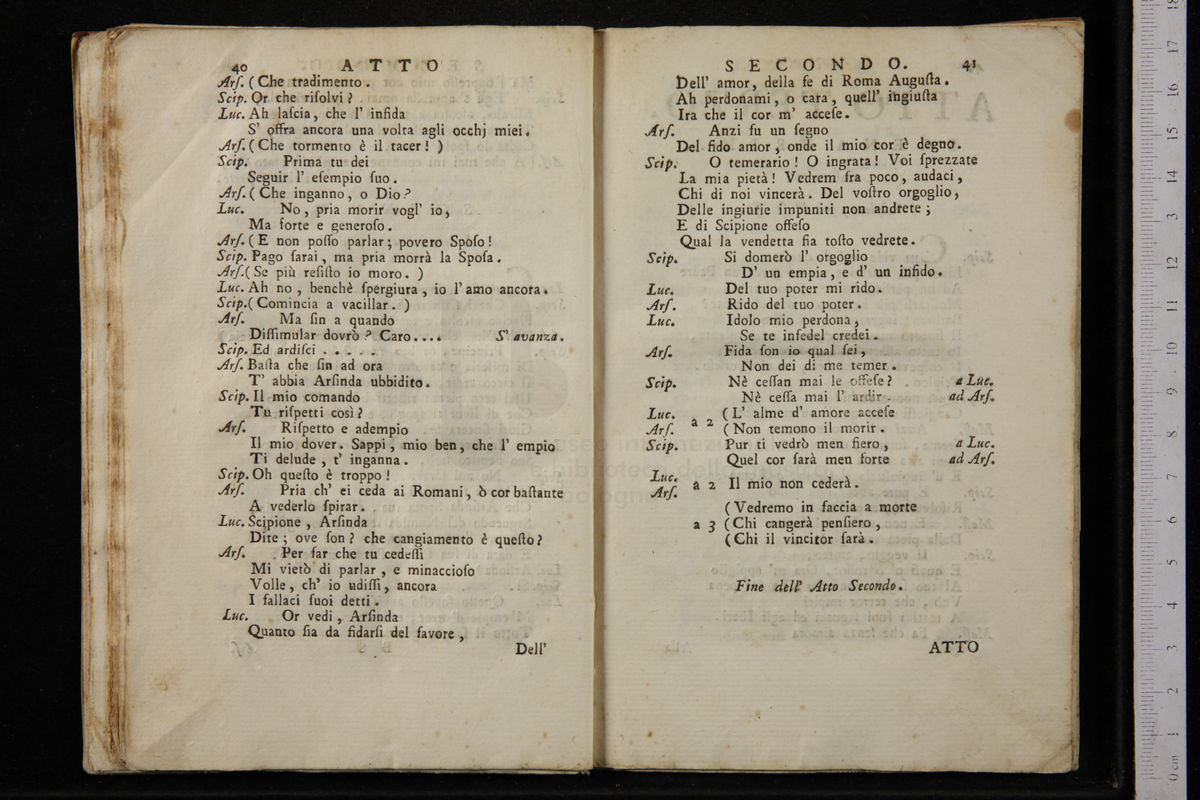 40 ATTO
Arſ. (Che tradimento.
Scip. Or che riſolvi?
Luc. Ah laſcia, che l' infida
S' offra ancora una volta agli occhj miei.
Arſ. (Che tormento è il tacer! )
Scip. Prima tu dei
Seguir l' eſempio ſuo.
Arſ. (Che inganno, o Dio?
Luc. No, pria morir vogl' io,
Ma forte e generoſo.
Arſ. (E non poſſo parlar; povero Spoſo!
Scip. Pago ſarai, ma pria morrà la Spoſa.
Arſ. (Se più reſiſto io moro. )
Luc. Ah no, benchè ſpergiura, io l' amo ancora.
Scip. (Comincia a vacillar. )
Arſ. Ma ſin a quando
Diſſimular dovrò? Caro.... S' avanza.
Scip. Ed ardiſci . . . . .
Arſ. Baſta che ſin ad ora
T' abbia Arſinda ubbidito.
Scip. Il mio comando
Tu riſpetti così?
Arſ. Riſpetto e adempio
Il mio dover. Sappi, mio ben, che l' empio
Ti delude, t' inganna.
Scip. Oh queſto è troppo!
Arſ. Pria ch' ei ceda ai Romani, ò cor baſtante
A vederlo ſpirar.
Luc. Scipione, Arſinda
Dite; ove ſon? che cangiamento è queſto?
Arſ. Per far che tu cedeſſi
Mi vietò di parlar, e minaccioſo
Volle, ch' io udiſſi, ancora
I fallaci ſuoi detti.
Luc. Or vedi, Arſinda
Quanto ſia da fidarſi del favore,
Dell'
SECONDO. 41
Dell' amor, della fe di Roma Auguſta.
Ah perdonami, o cara, quell' ingiuſta
Ira che il cor m' acceſe.
Arſ. Anzi fu un ſegno
Del fido amor, onde il mio cor è degno.
Scip. O temerario! O ingrata! Voi ſprezzate
La mia pietà! Vedrem fra poco, audaci,
Chi di noi vincerà. Del voſtro orgoglio,
Delle ingiurie impuniti non andrete;
E di Scipione offeſo
Qual la vendetta ſia toſto vedrete.
Scip. Si domerò l' orgoglio
D' un empia, e d' un infido.
Luc. Del tuo poter mi rido.
Arſ. Rido del tuo poter.
Luc. Idolo mio perdona,
Se te infedel credei.
Arſ. Fida ſon io qual ſei,
Non dei di me temer.
Scip. Nè ceſſan mai le offeſe? a Luc.
Nè ceſſa mai l' ardir. ad Arſ.
Luc. Arſ. a 2 (L' alme d' amore acceſe
(Non temono il morir.
Scip. Pur ti vedrò men fiero, a Luc.
Quel cor ſarà men forte ad Arſ.
Luc. Arſ. a 2 Il mio non cederà.
(Vedremo in faccia a morte
a 3 (Chi cangerà penſiero,
(Chi il vincitor ſarà.
Fine dell' Atto Secondo.
ATTO